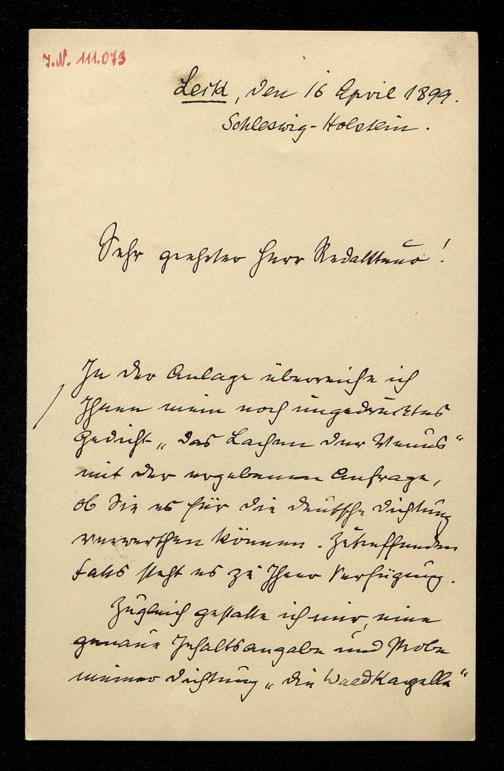 J.N. 111.073
Leck, den 16 April 1899.
Schleswig-Holstein.
Sehr geehrter Herr Redakteur!
In der Anlage überreiche ich
Ihnen mein noch ungedrucktes
Gedicht „Das Lachen der Venus“
mit der ergebenen Anfrage,
ob Sie es für die deutsche Dichtung
verwerthen können. Zutreffenden
Falls steht es zu Ihrer Verfügung.
Zugleich gestatte ich mir, eine
genaue Inhaltsangabe und Probe
meiner Dichtung „Die Waldkapelle“